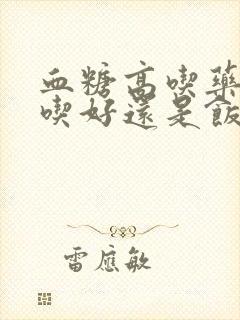 血糖高喫藥
喫好還是飯
雷應敏